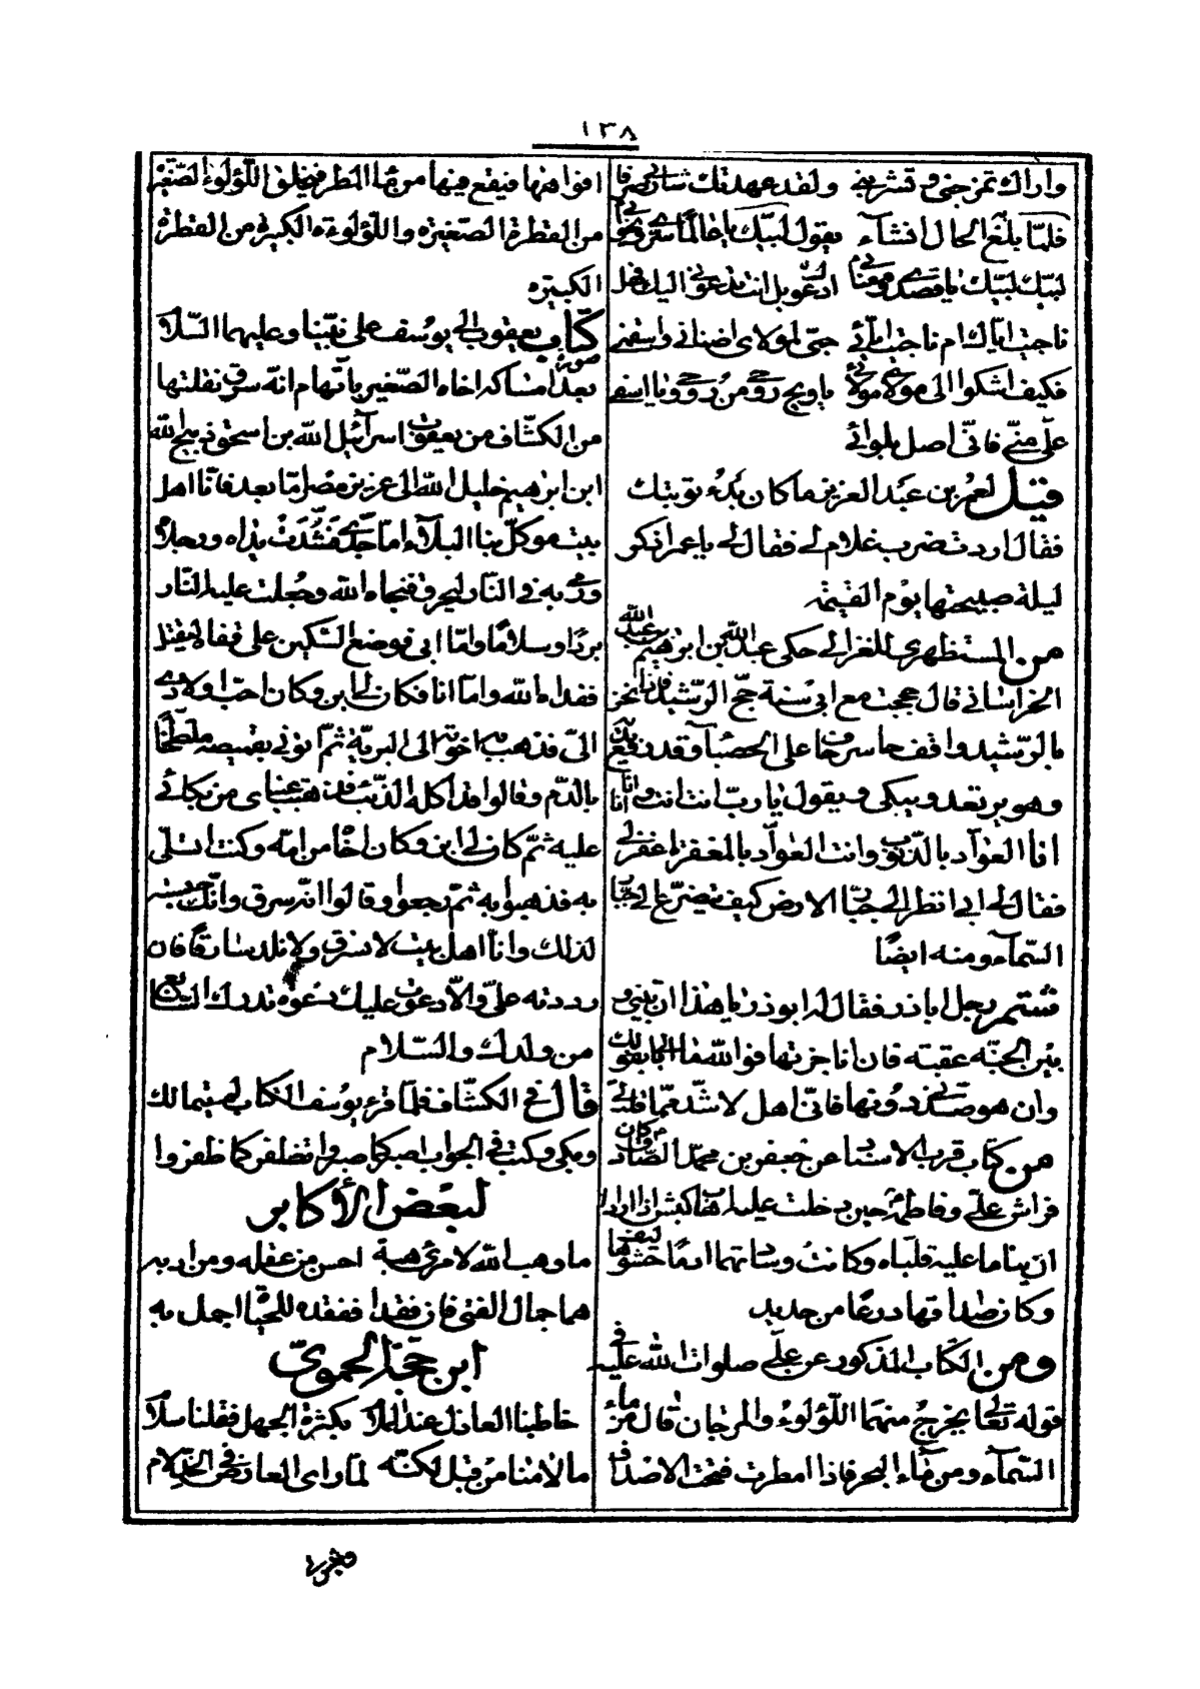 ١٣٨
واراك تمزجني وتشربني ولقد عهدتك شاربي صرفا
فلما بلغ الحال انشاء يقول لبيك يا عالما سري ونجوائي
لبيك لبيك يا قصدي ومعنائي ادعوك بل انت تدعوني اليك فهل
ناجيت اياك ام ناجيت ايائي حبي لمولاي اضناني واسقمني
فكيف اشكوا الى مولاي مولائي يا ويح روحي من روحي ويا اسفي
علي مني فاني اصل بلوائي
قيل لعمر بن عبد العزيز ما كان بدء توبتك
فقال اردت ضرب غلام لي فقال لي يا عمر اذكر
ليلة صبيحتها يوم القيمة
من المستظهري للغزالي حكى عبد الله بن ابرهيم
الخراساني قال حججت مع ابي سنة حج الرشيد فاذا نحن
بالرشيد واقف حاسر حاف على الحصباء وقد رفع يديه
وهو يرتعد ويبكي ويقول يا رب انت انت وانا انا
انا العواد بالذنوب وانت العواد بالمغفرة اغفر لي
فقال لي ابي انظر الى جبار الارض كيف يتضرع الى جبار
السماء ومنه ايضًا
شتم رجل اباذر فقال له ابوذر يا هذا ان بيني و
بين الجنة عقبة فان انا جزتها فوالله ما ابالي بقولك
وان هو صدني دونها فاني اهل لاشد مما قلت لي
من كتاب قرب الاسناد عن جعفر بن محمد الصادق كان
فراش علي وفاطمة حين دخلت عليه اهاب كبش اذا ارادا
ان يناما عليه قلباه وكانت وسادتهما ادمًا حشوها ليف
وكان صداقها درعًا من حديد
ومن الكتاب المذكور عن علي صلوات الله عليه في
قوله تعالى يخرج منهما اللؤلوء والمرجان قال من ماء
السماء ومن ماء البحر فاذا امطرت فتحت الاصداف
افواهها فيقع فيها من ماء المطر فيخلق اللؤلوء الصغيرة
من القطرة الصغيرة واللؤلوءة الكبيرة من القطرة
الكبيرة
كتاب يعقوب الى يوسف على نبينا وعليهما السلام
بعد امساكه اخاه الصغير باتهام انه سرق نقلتها
من الكشاف من يعقوب اسرائيل الله بن اسحق ذبيح الله
ابن ابرهيم خليل الله الى عزيز مصر اما بعد فانا اهل
بيت موكل بنا البلاء اما جدي فشدت يداه ورجلاه
ورمي به في النار ليحرق فنجاه الله وجعلت عليه النار
بردًا وسلامًا واما ابي فوضع السكين على قفاه ليقتل
ففداه الله واما انا فكان لي ابن وكان احب اولادي
الي فذهب به اخوته الى البرية ثم اتوني بقميصه ملطخًا
بالدم وقالوا قد اكله الذئب فذهبت عيناي من بكائي
عليه ثم كان لي ابن وكان اخًا من امه وكنت اتسلى
به فذهبوا به ثم رجعوا وقالوا انه سرق وانك حبسته
لذلك وانا اهل بيت لا نسرق ولا نلد سارقًا فان
رددته علي والا دعوت عليك دعوة تدرك السابع
من ولدك والسلام
قال في الكشاف فلما قرء يوسف الكتاب لم يتمالك
وبكى وكتب في الجواب اصبر كما صبروا تظفر كما ظفروا
لبعض الأكابر
ما وهب الله لامرئ هبة احسن من عقله ومن ادبه
هما جمال الفتى فان فقدا ففقده للحياة اجمل به
ابن حجة الحموي
خاطبنا العاذل عند الملا بكثرة الجهل فقلنا سلام
ما لامنا من قبل لكنه لما راى العارض في الخد لام